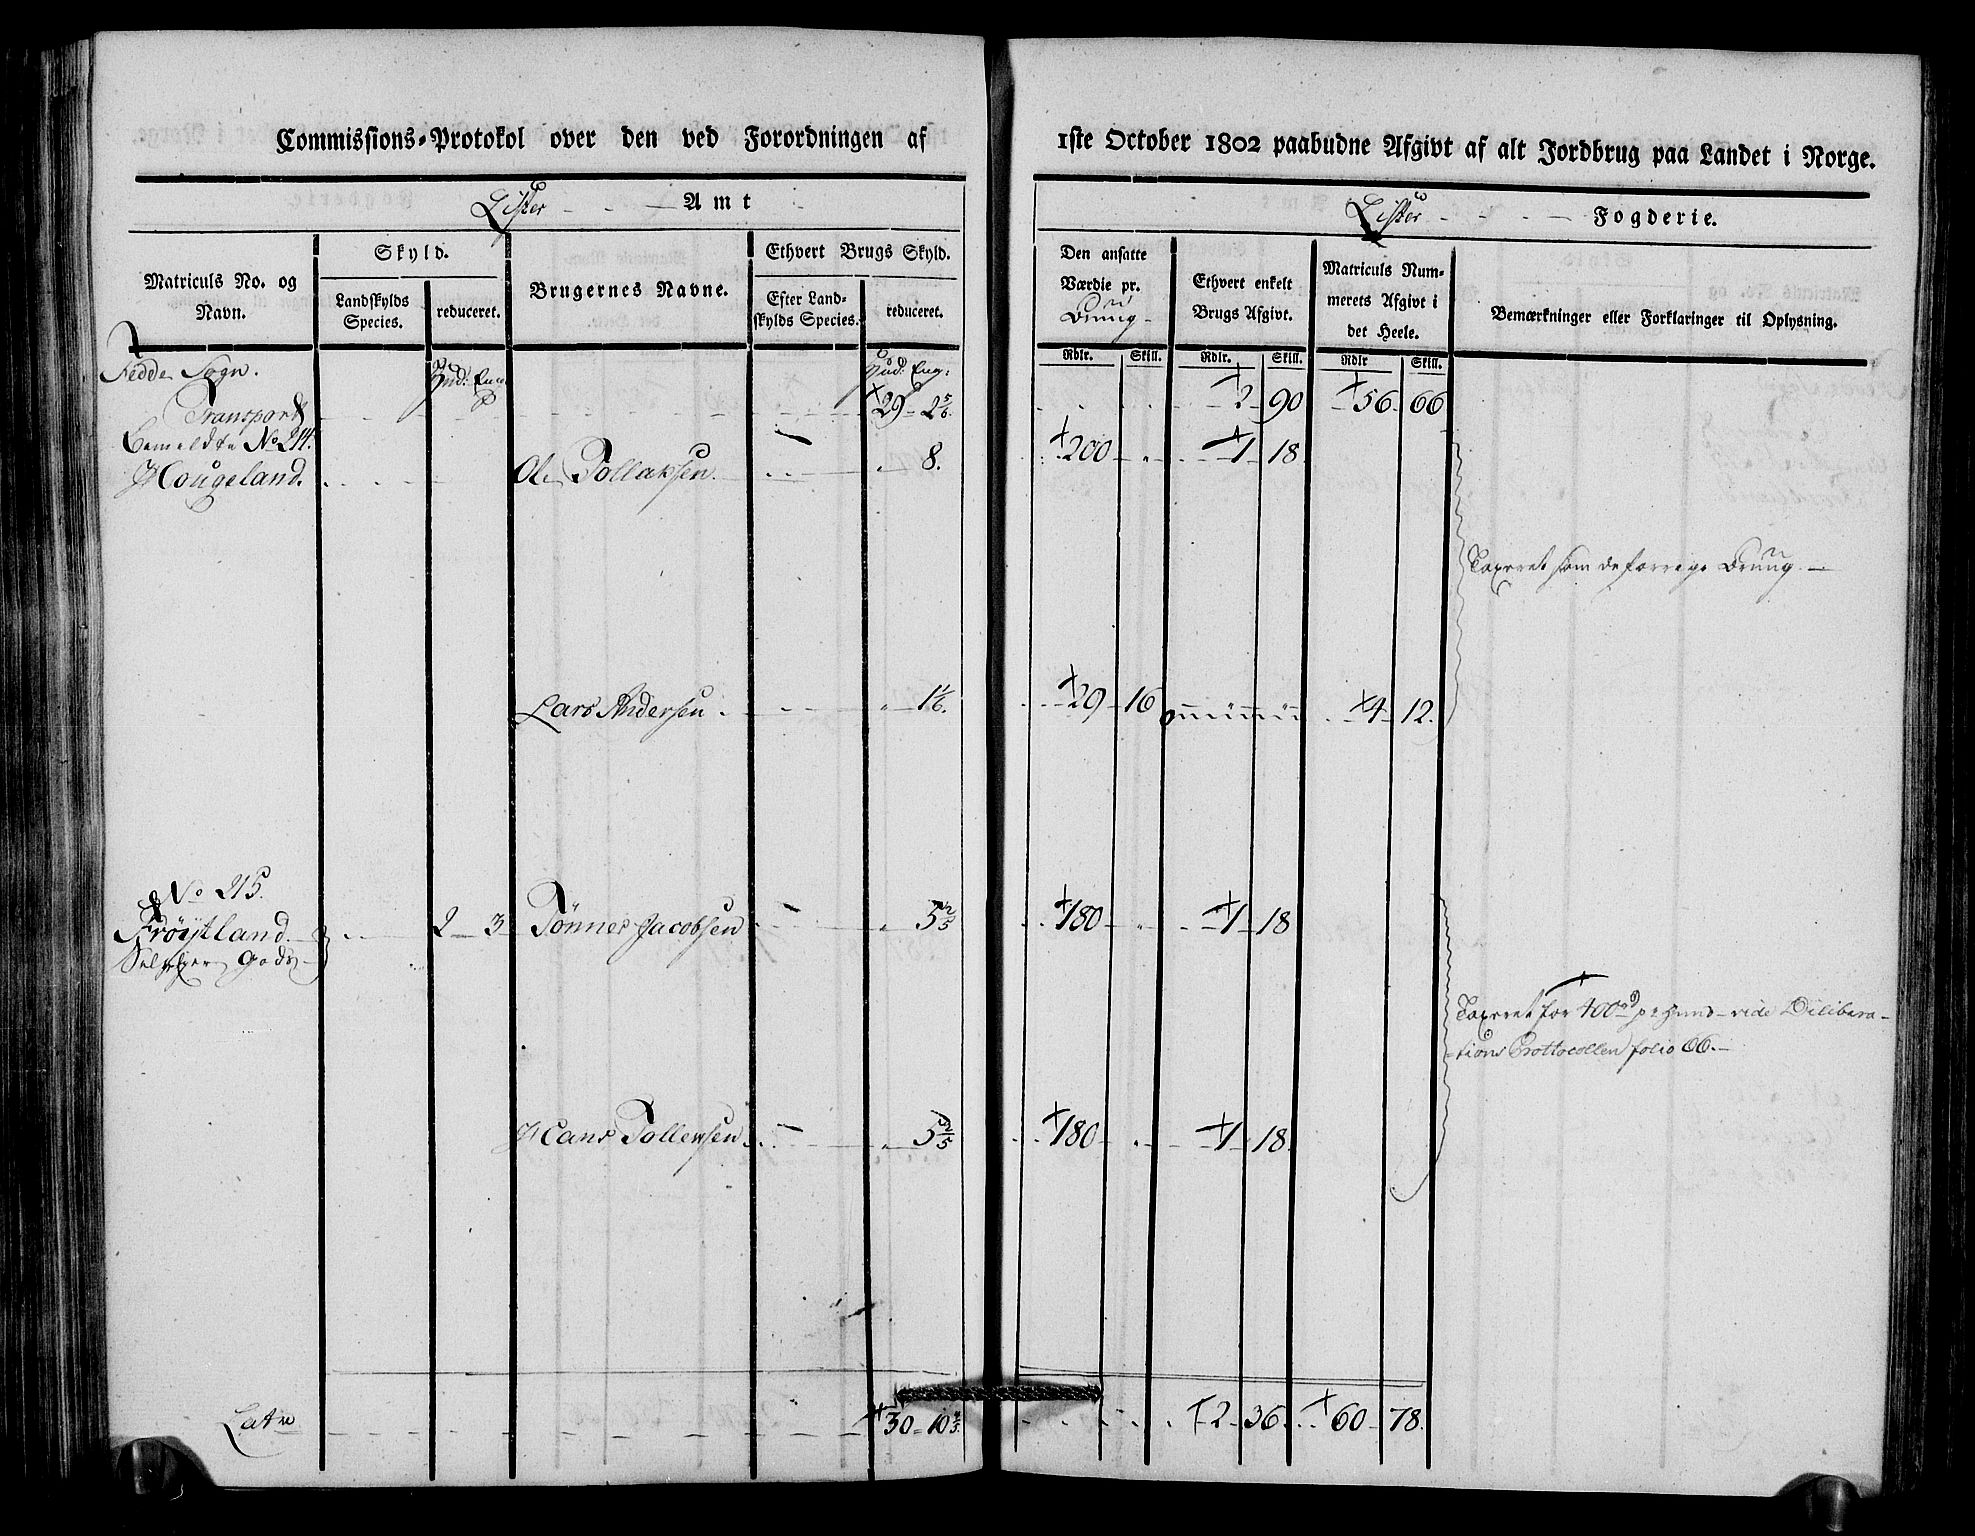 Commissions-Protokol over den ved Forordningen af
1ste October 1802 paabudne Afgivt af alt Jordbrug paa Landet i Norge.
Lister Amt
Lister Fogderie.
Matriculs No. og Navn.
Skyld.
Landskylds Species.
reduceret.
Brugernes Navne.
Ethvert Brugs Skyld.
Efter Landskylds Species.
reduceret.
Den ansatte Værdie pr. Bruug
Ethvert enkelt Brugs Afgivt.
Matriculs Nummerets Afgivt i det Heele.
Bemærkninger eller Forklaringer til Oplysning.
Rdlr. Skill. Rdlr. Skill. Rdlr Skill.
Fedde Sogn. Hud. Eng: Hud. Eng:
Transport 29 - 2 5/6. 2 - 90 56 - 66
Bemeldte No 214.
Hougeland. Ole Tollaksen. 8. 200 1 - 18
Taxeret som de forrige Bruug.
Lars Andersen. 1 1/6. 29 - 16 4 - 12.
No 215.
Frøÿtland. 2 - 3 Tønnes Jacobsen 5 2/5 180 1 - 18
Selveyer Gods
Taxeret for 400rd pr Hund - vide Delibera-
-tions Prottocollen folio 66.
Hans Tollevsen 5 2/5 180 1 - 18.
Latus 30 - 10 4/5. 2 - 36. 60 - 78.